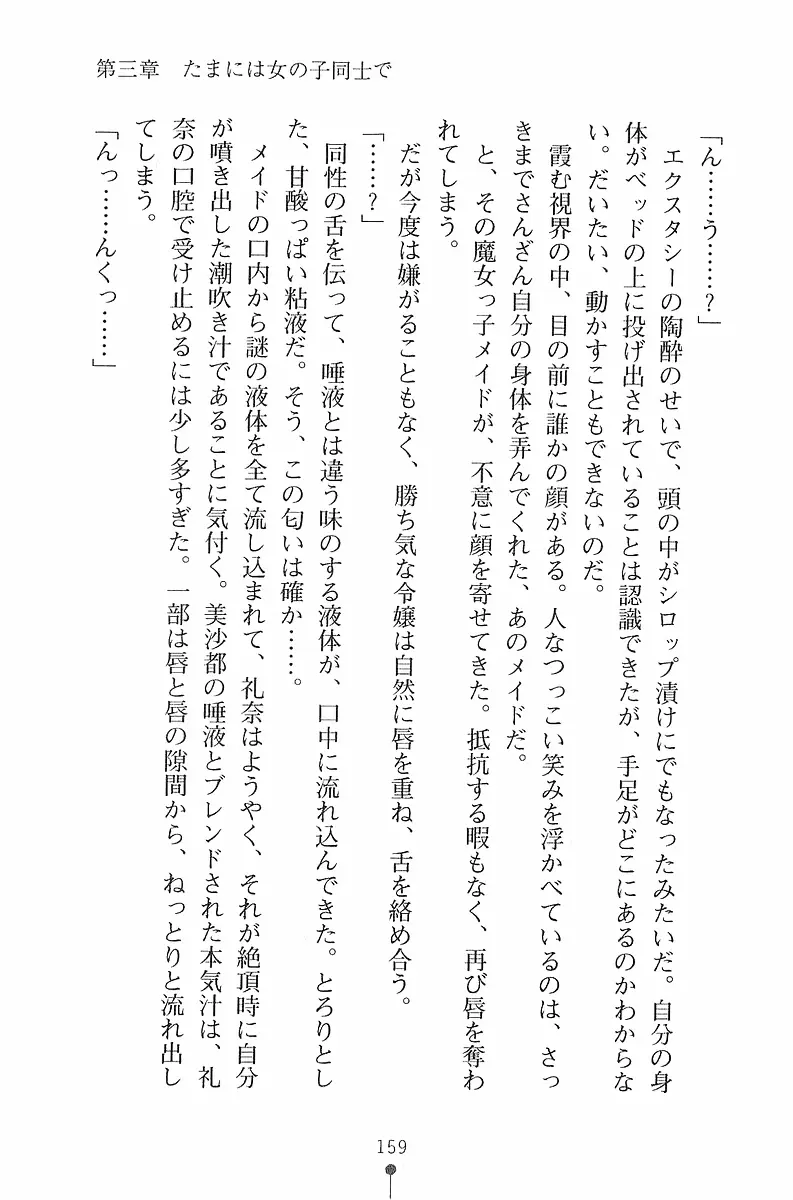 第三章　たまには女の子同士で
「ん……う……？」
　エクスタシーの陶酔のせいで、頭の中がシロップ漬けにでもなったみたいだ。自分の身
体がベッドの上に投げ出されていることは認識できたが、手足がどこにあるのかわからな
い。だいたい、動かすこともできないのだ。
　霞む視界の中、目の前に誰かの顔がある。人なつっこい笑みを浮かべているのは、さっ
きまでさんざん自分の身体を弄んでくれた、あのメイドだ。
　と、その魔女っ子メイドが、不意に顔を寄せてきた。抵抗する暇もなく、再び唇を奪わ
れてしまう。
　だが今度は嫌がることもなく、勝ち気な令嬢は自然に唇を重ね、舌を絡め合う。
「……？」
　同性の舌を伝って、唾液とは違う味のする液体が、口中に流れ込んできた。とろりとし
た、甘酸っぱい粘液だ。そう、この匂いは確か……。
　メイドの口内から謎の液体を全て流し込まれて、礼奈はようやく、それが絶頂時に自分
が噴き出した潮吹き汁であることに気付く。美沙都の唾液とブレンドされた本気汁は、礼
奈の口腔で受け止めるには少し多すぎた。一部は唇と唇の隙間から、ねっとりと流れ出し
てしまう。
「んっ……んくっ……」
159